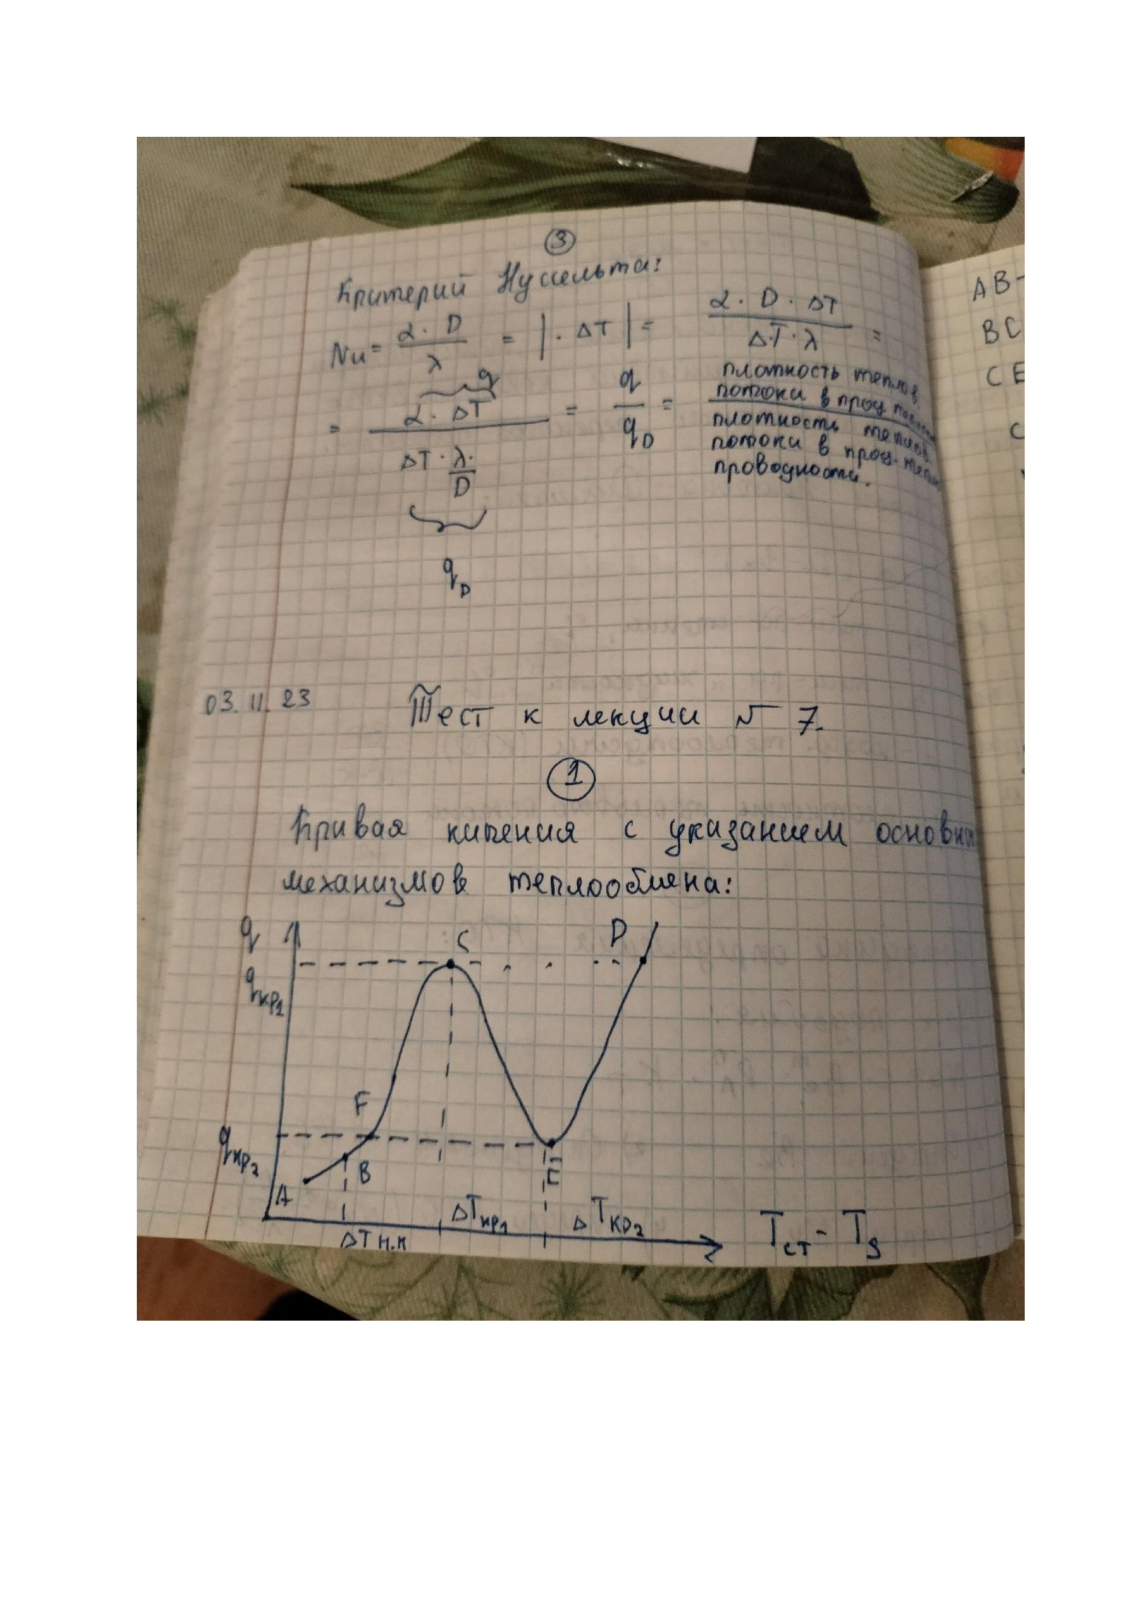 3
Критерий Нуссельта:
Nu = α · D / λ = | · ΔT | = α · D · ΔT / ΔT · λ =
= α · ΔT / ΔT · λ / D = q / q_D = плотность теплов.
q
потока в проц
плотность теплов.
потока в проц. тепло
проводности.
q_D
03.11.23 Тест к лекции № 7.
1
Кривая кипения с указанием основных
механизмов теплообмена:
q
C
D
q_кр1
F
q_кр2
A
B
E
ΔT н.к
ΔT_кр1
ΔT_кр2
T_ст - T_s
AB-
BC
CE